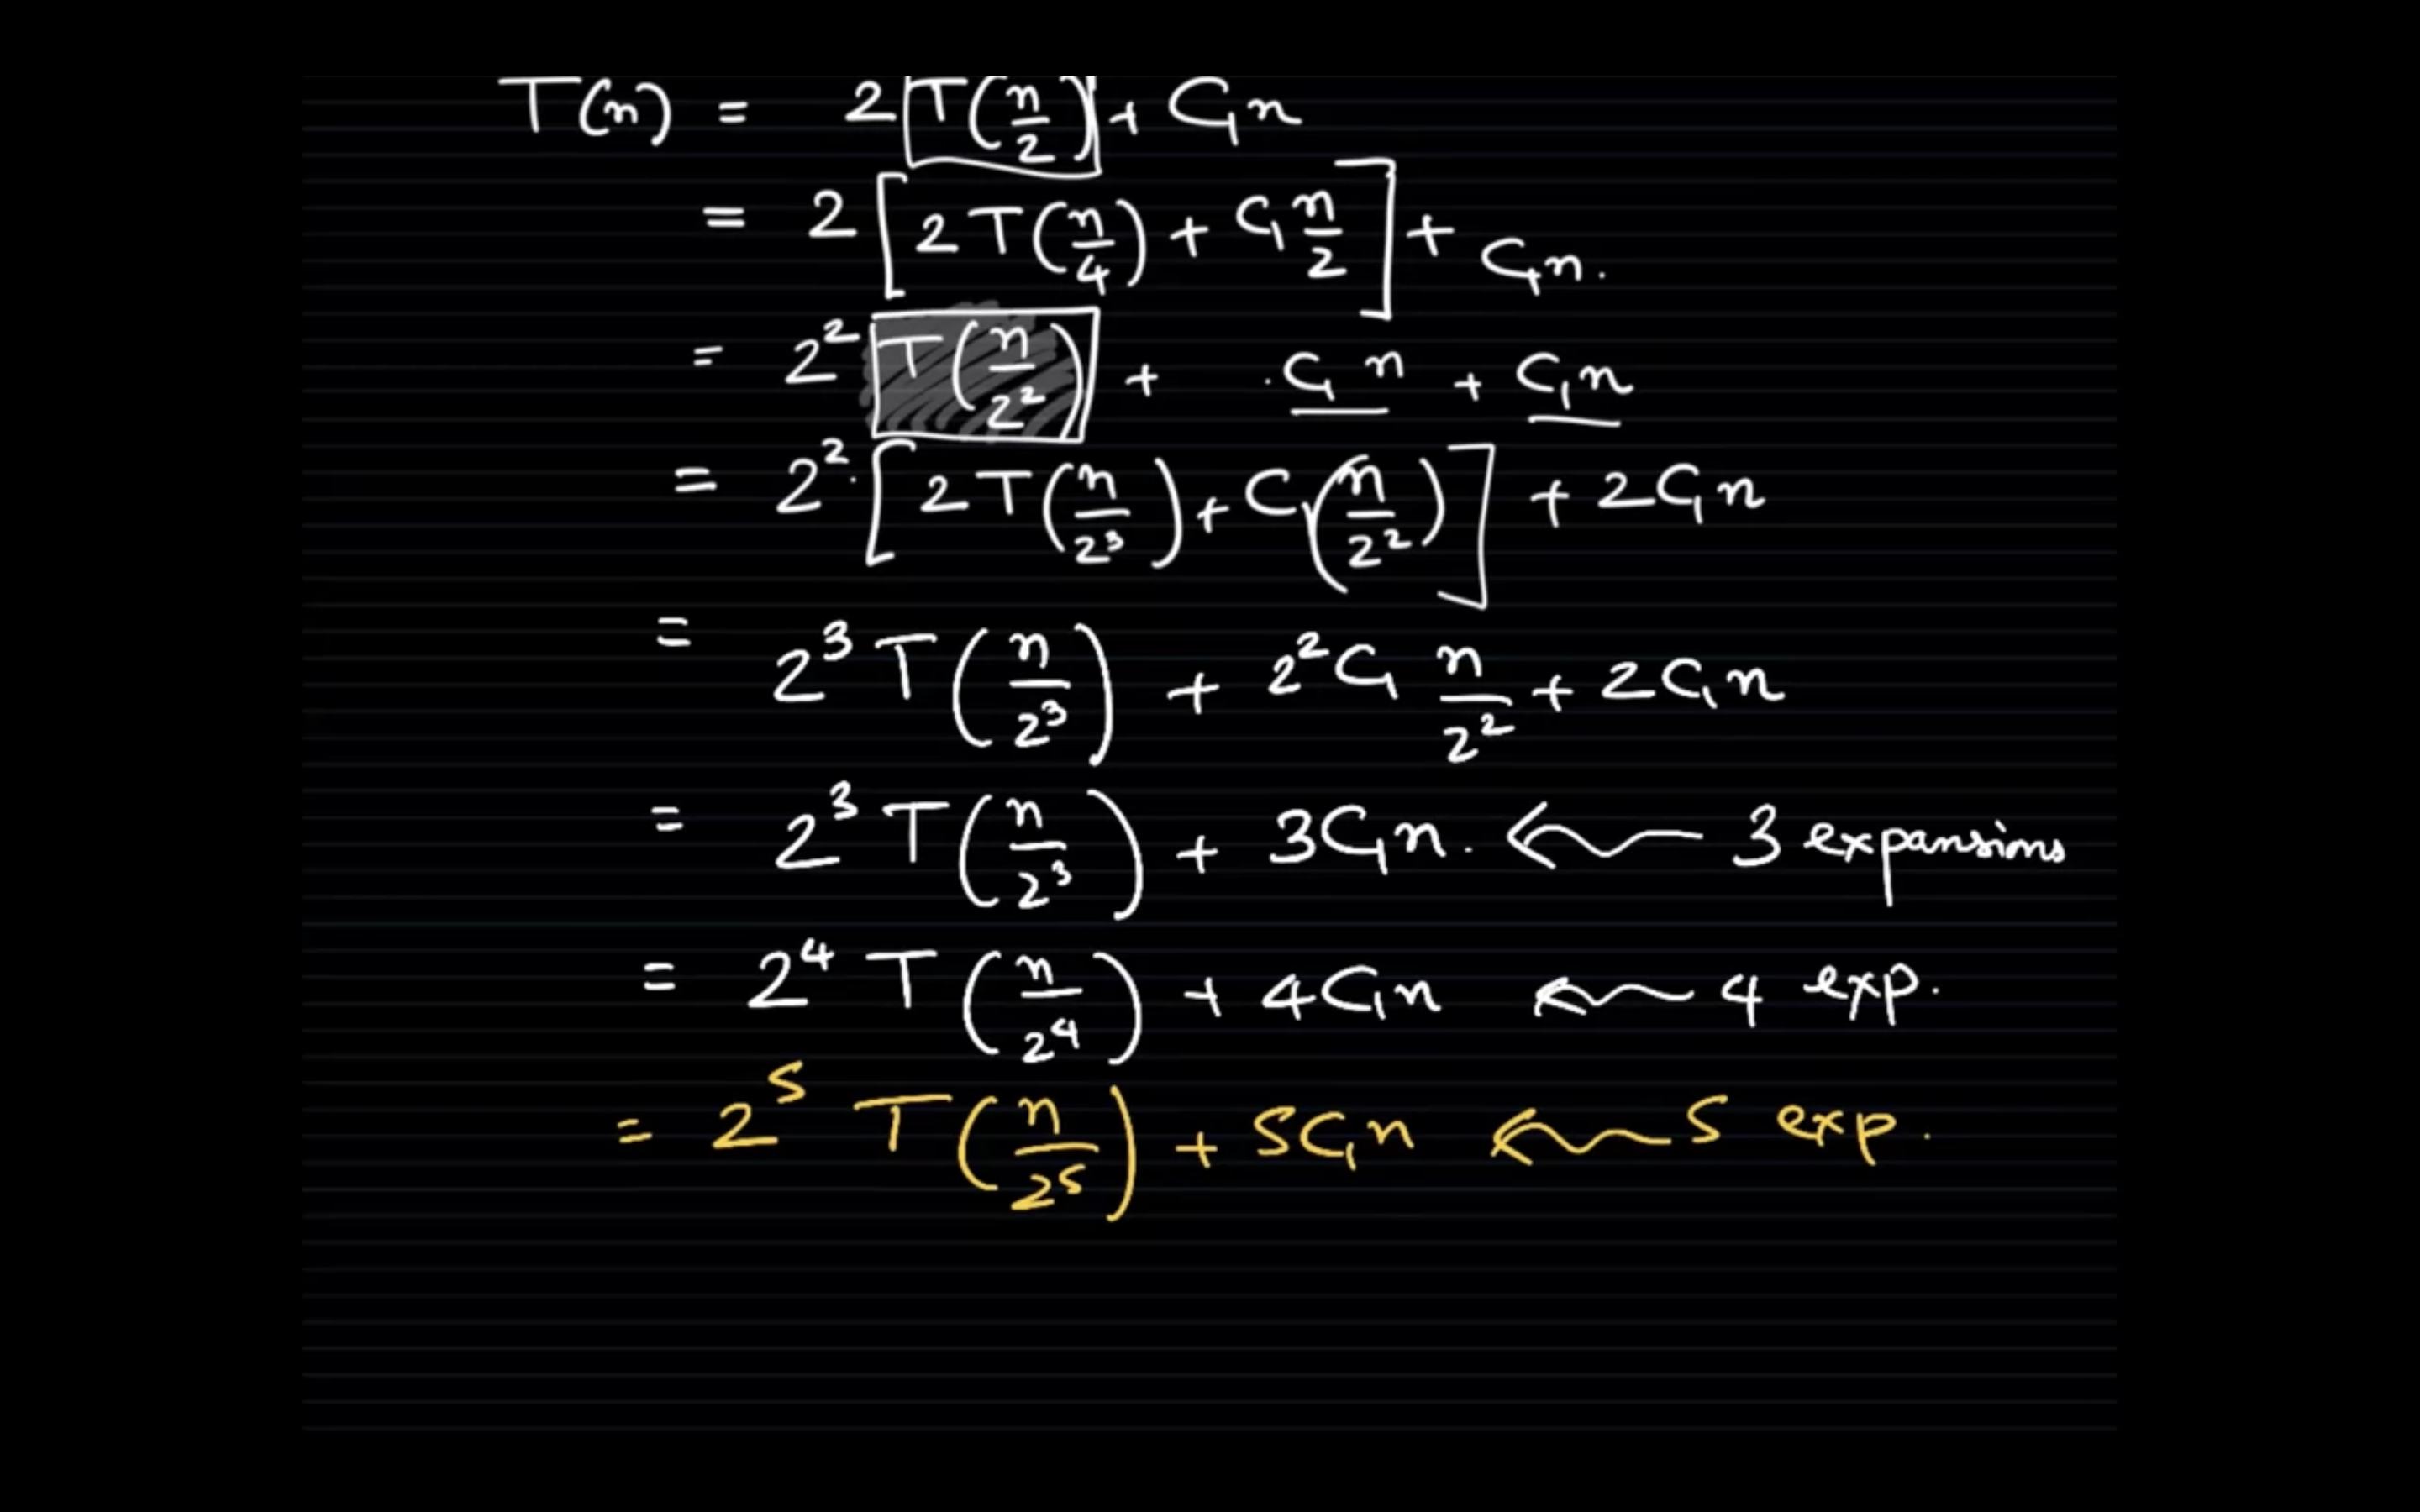 T(n) = 2 T(n/2) + C₁n
= 2 [ 2T(n/4) + C₁ n/2 ] + C₁n.
= 2² T(n/2²) + . C₁ n + C₁n
= 2² . [ 2T(n/2³) + C₁(n/2²) ] + 2C₁n
= 2³ T(n/2³) + 2² C₁ n/2² + 2C₁n
= 2³ T(n/2³) + 3C₁n. ← 3 expansions
= 2⁴ T(n/2⁴) + 4C₁n ← 4 exp.
= 2⁵ T(n/2⁵) + 5C₁n ← 5 exp.